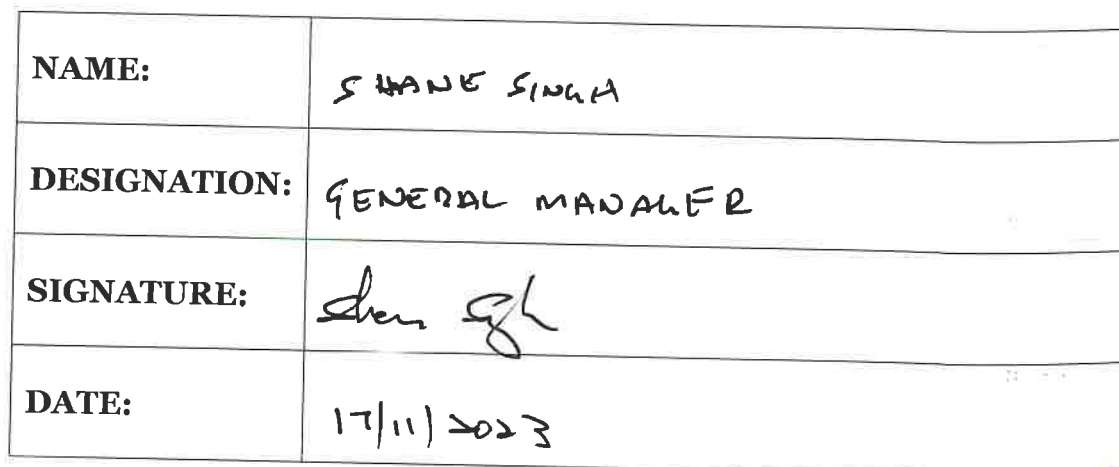 NAME: SHANE SINGH
DESIGNATION: GENERAL MANAGER
SIGNATURE:
DATE: 17/11/2023